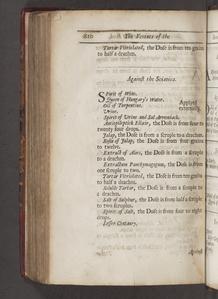 810 The Vertues of the
Tartar Vitriolated, the Dose is from ten grains
to half a drachm.
Against the Sciatica.
Spirit of Wine.
Queen of Hungary's Water.
Oil of Turpentine.
Urine.
Applyed
externally.
Spirit of Urine and Sal Armoniack.
Antiepileptick Elixir, the Dose is from four to
twenty four drops.
Jalap, the Dose is from a scruple to a drachm.
Rosin of Jalap, the Dose is from four grains
to twelve.
Extract of Aloes, the Dose is from a scruple
to a drachm.
Extractum Panchymagogum, the Dose is from
one scruple to two.
Tartar Vitriolated, the Dose is from ten grains
to half a drachm.
Soluble Tartar, the Dose is from a scruple to
a drachm.
Salt of Sulphur, the Dose is from half a scruple
to two scruples.
Spirit of Salt, the Dose is from four to eight
drops.
Lesser Centaury.
Against